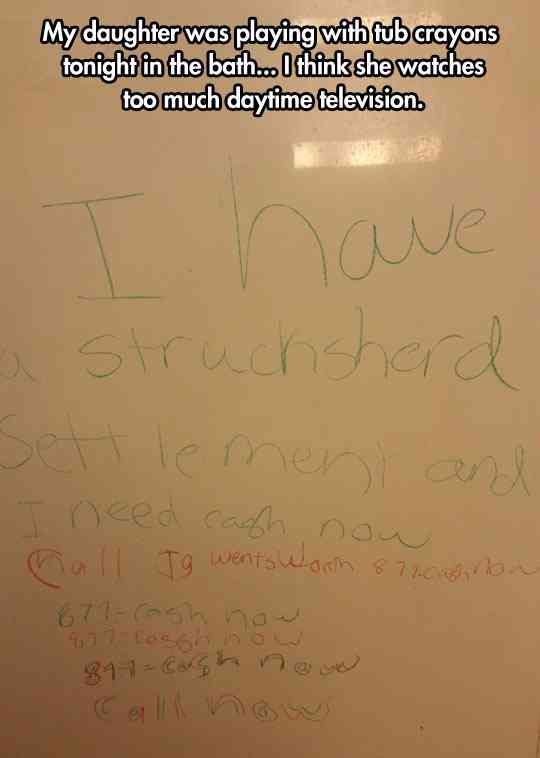 My daughter was playing with tub crayons
tonight in the bath... I think she watches
too much daytime television.
I have
a struchsherd
Settlement and
I need cash now
Call Jg wentsworth 877-cash now
877-cash now
877-cassh now
877-cash now
Call now